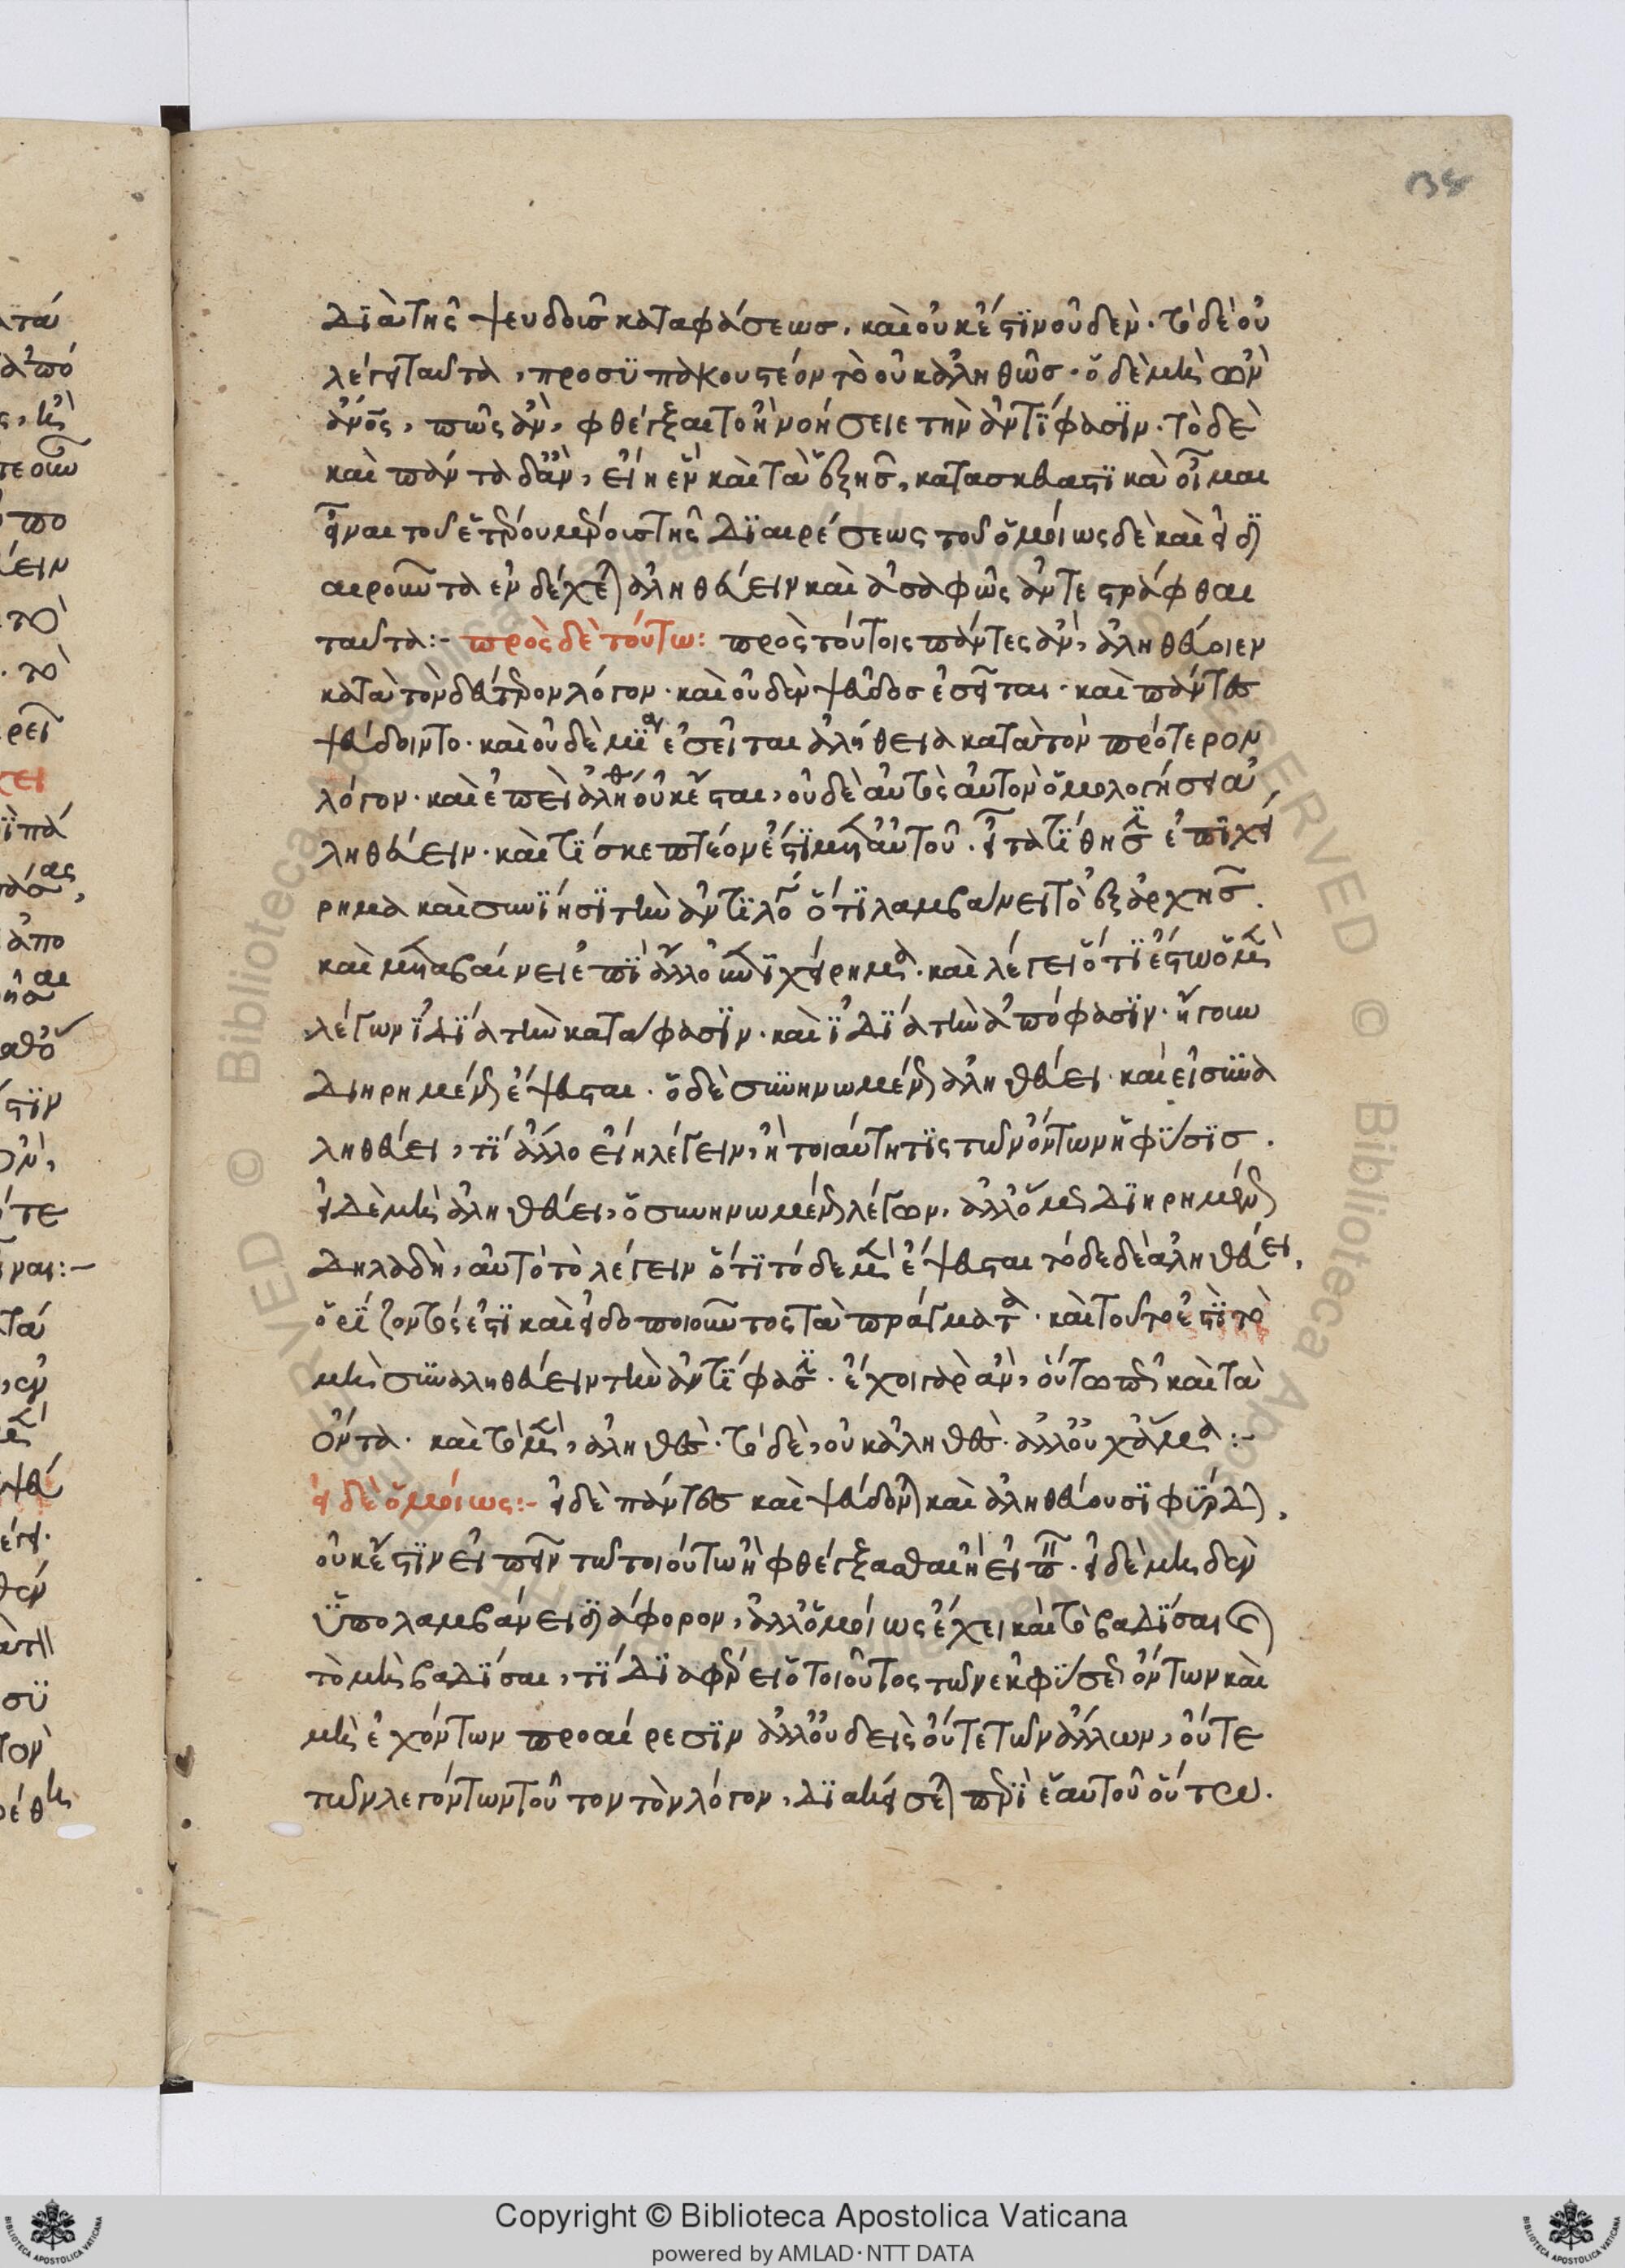 διὰ τῆς ψευδοῦς καταφάσεως, καὶ οὐκέστιν οὐδέν· τὸ δὲ οὐ
λέγει ταῦτα, προσυπακουστέον τὸ οὐκ ἀληθῶς· ὁ δὲ μὴ ὢν
ἄνος, πῶς ἂν, φθέγξαιτο ἢ νοήσειε τὴν ἀντίφασιν· τὸ δὲ
καὶ πάντα δ' ἂν, εἴη ἓν καὶ τὰ ἑξῆς, κατασκευαστικὰ οἶμαι
εἶναι τοῦ ἑτέρου μέρους τῆς διαιρέσεως τοῦ ὁμοίως δὲ καὶ εἰ δι
αιροῦντα ἐνδέχεται ἀληθεύειν καὶ ἀσαφῶς ἀντεστράφθαι
ταῦτα:- πρὸς δὲ τούτω: πρὸς τούτοις πάντες ἂν, ἀληθεύοιεν
κατὰ τὸν δεύτερον λόγον· καὶ οὐδὲν ψεῦδος ἐσεῖται· καὶ πάντες
ψεύδοιντο· καὶ οὐδὲ μία ἐσεῖται ἀλήθεια κατὰ τὸν πρότερον
λόγον· καὶ ἐπεὶ ἀληθ οὐκ ἔσται, οὐδὲ αὐτὸς αὐτὸν ὁμολογήσει ἀ
ληθεύειν· καὶ τί σκεπτέον ἐστὶ μετ' αὐτοῦ· εἶτα τίθησι ἐπιχεί
ρημα καὶ συνίησι τὴν ἀντιλο ὅτι λαμβάνει τὸ ἐξ ἀρχῆς.
καὶ μεταβαίνει ἐπὶ ἄλλο ἐπιχείρημα· καὶ λέγει ὅτι ἔστω ὁ μὲν
λέγων ἰδία τὴν κατάφασιν· καὶ ἰδία τὴν ἀπόφασιν· ἤγουν
διῃρημένως ἔψευσται· ὁ δὲ συνηνωμένως ἀληθεύει· καὶ εἰ συνα
ληθεύει, τί ἄλλο εἴη λέγειν, ἢ τοιαύτη τις τῶν ὄντων ἡ φύσις.
εἰ δὲ μὴ ἀληθεύει, ὁ συνηνωμένως λέγων, ἀλλ' ὁ μὲν διῃρημένως
δηλαδὴ, αὐτὸ τὸ λέγειν ὅτι τόδε μὲν ἔψευσται τόδε δὲ ἀληθεύει,
ὁρίζοντός ἐστι καὶ εἰδοποιοῦντος τὰ πράγματα· καὶ τοῦτο ἐστὶ τὸ
μὴ συναληθεύειν τὴν ἀντίφασιν· ἔχοι γὰρ ἂν, οὕτω πως καὶ τὰ
ὄντα· καὶ τὸ μὲν, ἀληθὲς· τὸ δὲ, οὐκ ἀληθὲς· ἀλλ' οὐχ ἅμα:-
εἰ δὲ ὁμοίως:- εἰ δὲ πάντες καὶ ψεύδονται καὶ ἀληθεύουσι φησὶν,
οὐκ ἔστιν εἰπεῖν τῷ τοιούτω ἢ φθέγξασθαι ἢ εἰπ· εἰ δὲ μηδὲν
ὑπολαμβάνει διάφορον, ἀλλ' ὁμοίως ἔχει καὶ τὸ βαδίσαι καὶ
τὸ μὴ βαδίσαι, τί διαφέρει ὁ τοιοῦτος τῶν ἐκ φύσεως ὄντων καὶ
μὴ ἐχόντων προαίρεσιν ἀλλ' οὐδεὶς οὔτε τῶν ἄλλων, οὔτε
τῶν λεγόντων τοῦτον τὸν λόγον, διακεῖσεται περὶ ἑαυτοῦ οὕτω.